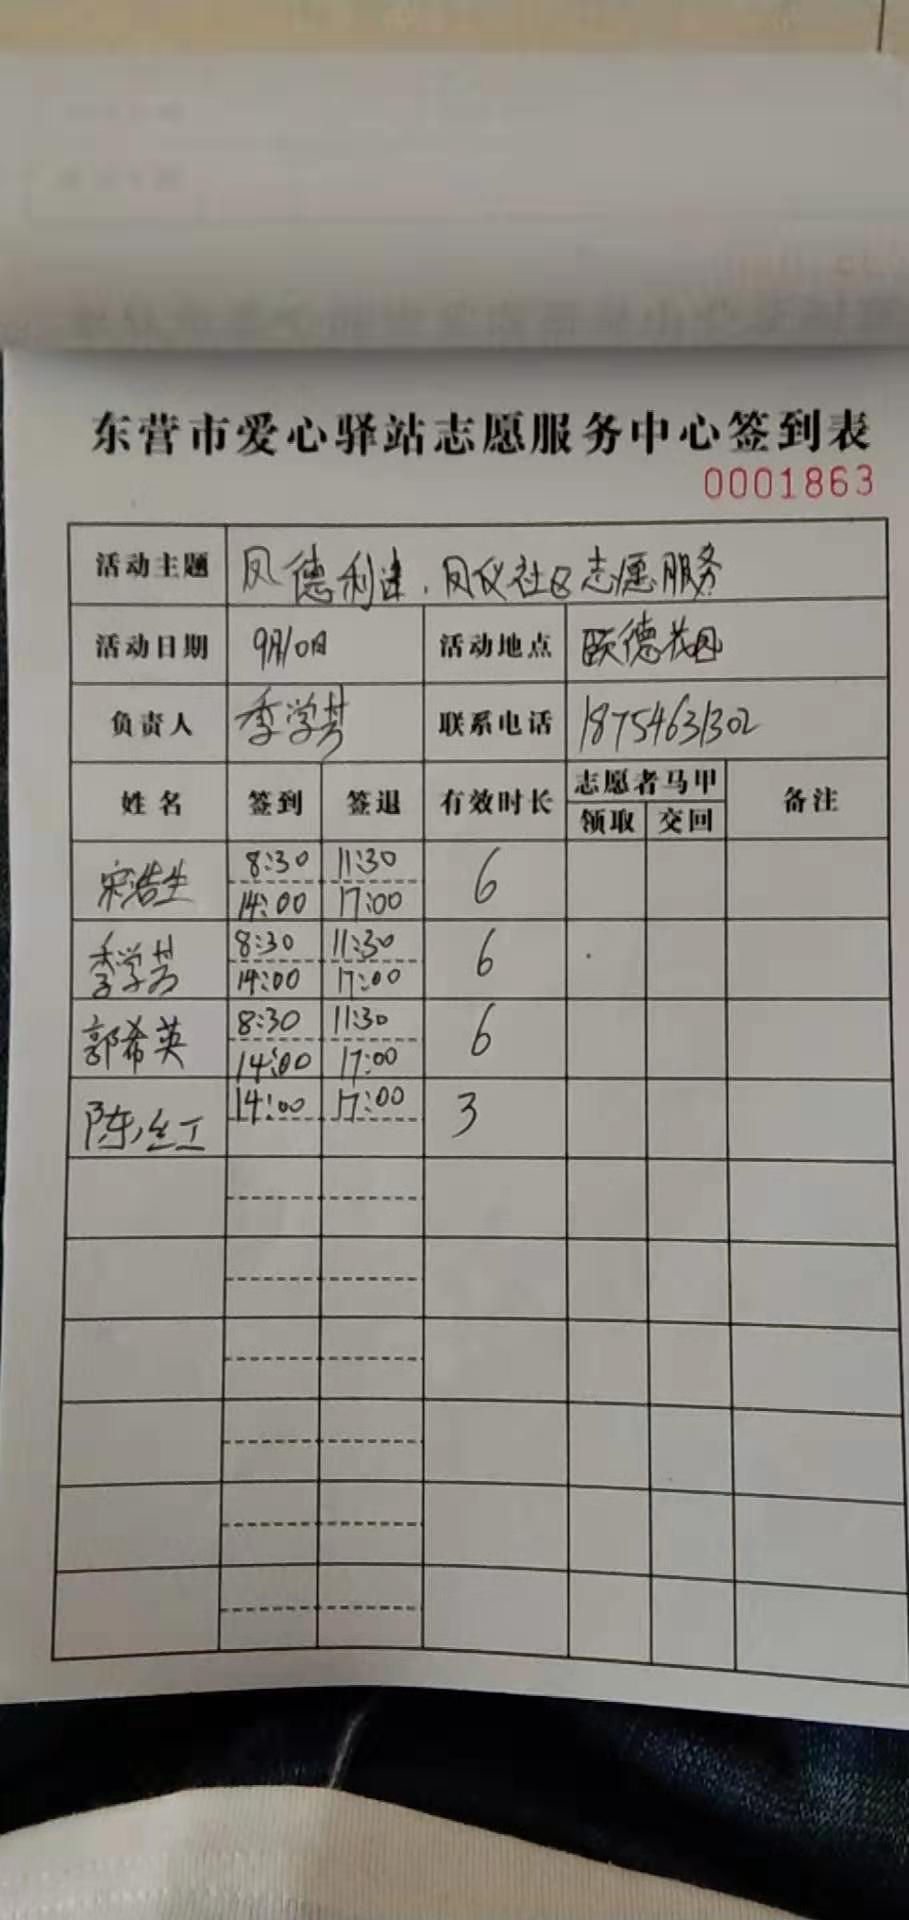 东营市爱心驿站志愿服务中心签到表
0001863
活动主题 凤德利津、凤仪社区志愿服务
活动日期 9月10日 活动地点 颐德花园
负责人 季学芳 联系电话 18754631302
姓名 签到 签退 有效时长 志愿者马甲 备注
领取 交回
宋浩生 8:30 11:30 6
14:00 17:00
季学芳 8:30 11:30 6
14:00 17:00
郭希英 8:30 11:30 6
14:00 17:00
陈红 14:00 17:00 3